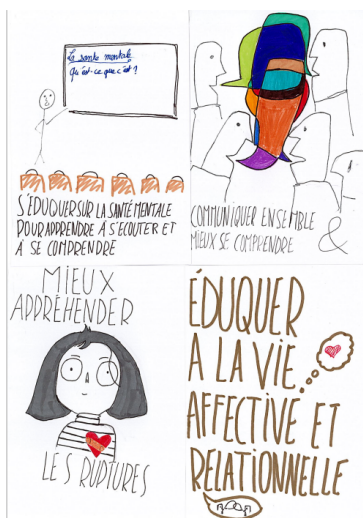 La santé mentale,
Qu'est-ce que c'est ?
S'ÉDUQUER SUR LA SANTÉ MENTALE
POUR APPRENDRE A S'ECOUTER ET
A SE COMPRENDRE
COMMUNIQUER ENSEMBLE
& MIEUX SE COMPRENDRE
MIEUX
APPRÉHENDER
LES RUPTURES
ÉDUQUER
A LA VIE
AFFECTIVE ET
RELATIONNELLE